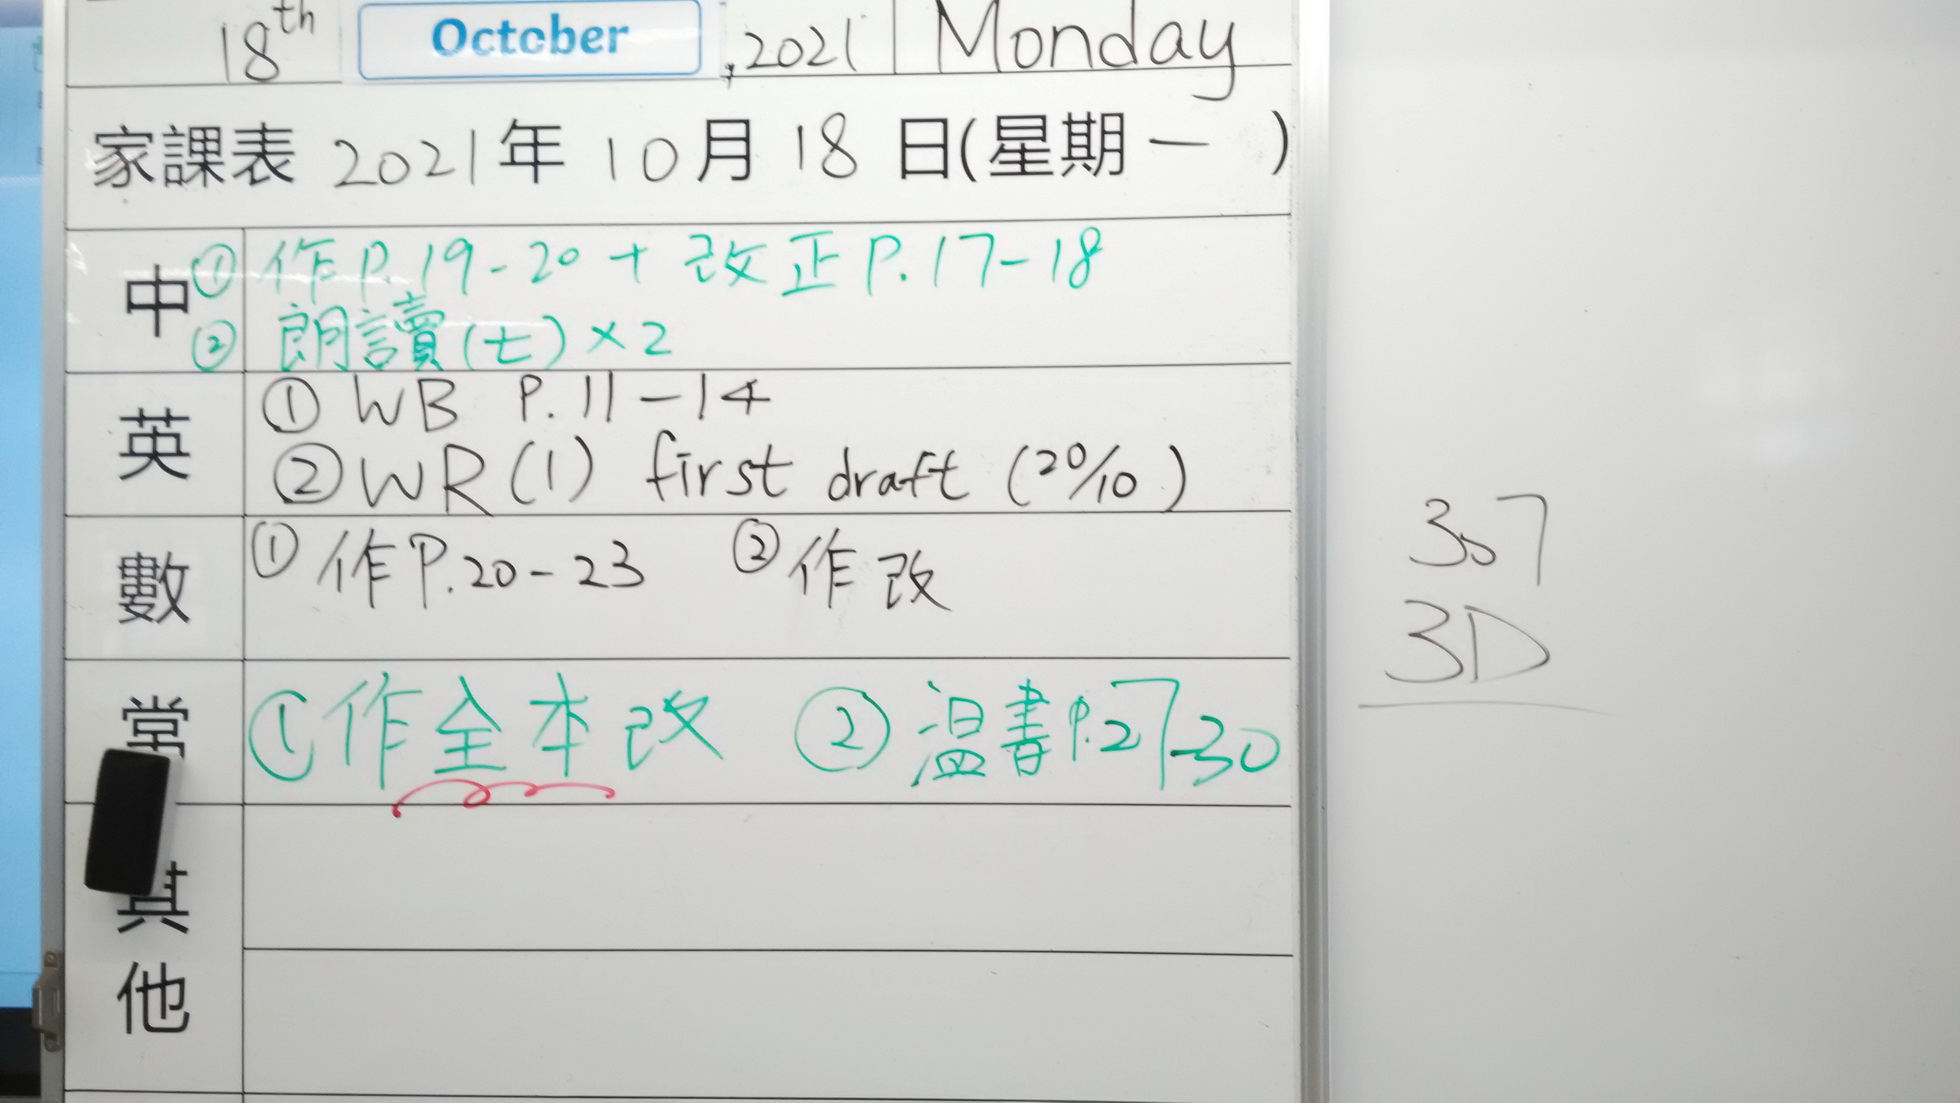 18th October, 2021 Monday
家課表 2021年 10月 18 日(星期一 )
中 ① 作P.19-20 + 改正P.17-18
② 朗讀(七)×2
英 ① WB P.11-14
② WR(1) first draft (20/10)
數 ① 作P.20-23 ② 作改
常 ① 作全本改 ② 溫書P.27-30
其他
307
3D